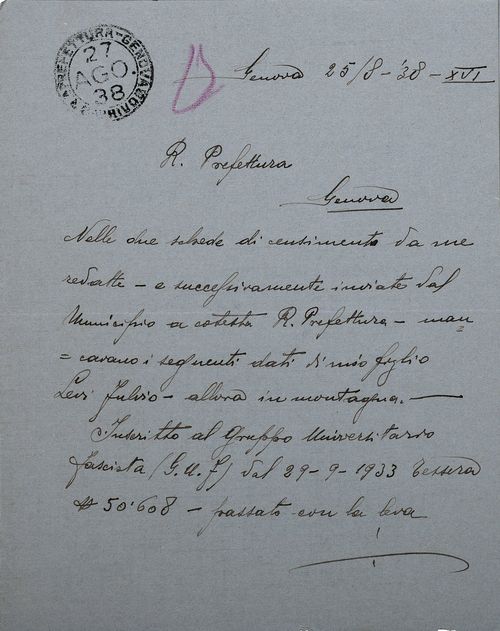 R. PREFETTURA - GENOVA
27
AGO.
38
Genova 25/8-'38-XVI
R. Prefettura
Genova
Nelle due schede di censimento da me
redatte - e successivamente inviate dal
Municipio a codesta R. Prefettura - man=
=cavano i seguenti dati di mio figlio
Levi Fulvio - allora in montagna. -
Inscritto al Gruppo Universitario
fascista (G.U.F) dal 29-9-1933 Tessera
N 50'608 - passato con la leva